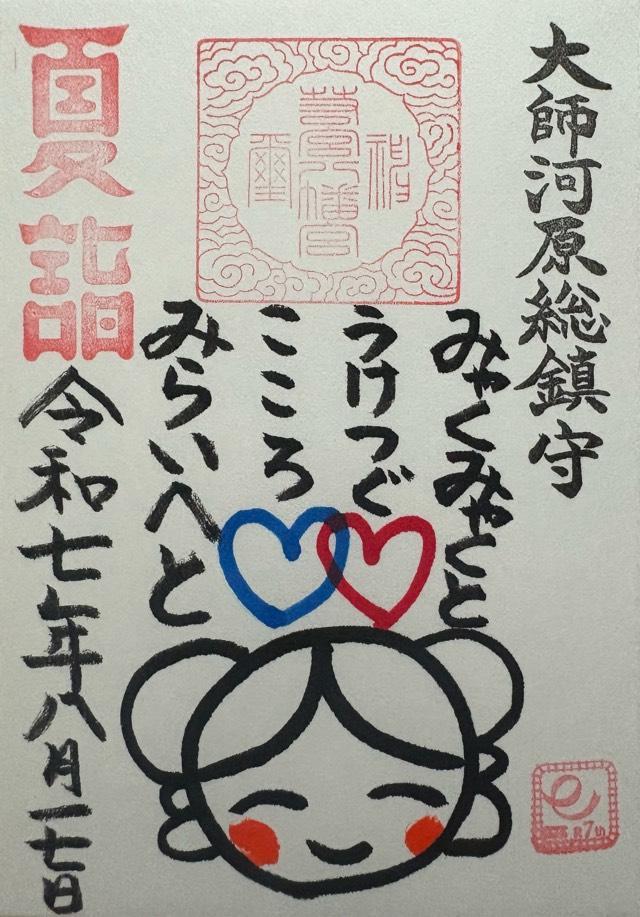 大師河原総鎮守
みゃくみゃくと
うけつぐ
こころ
みらいへと
夏詣
令和七年八月一七日